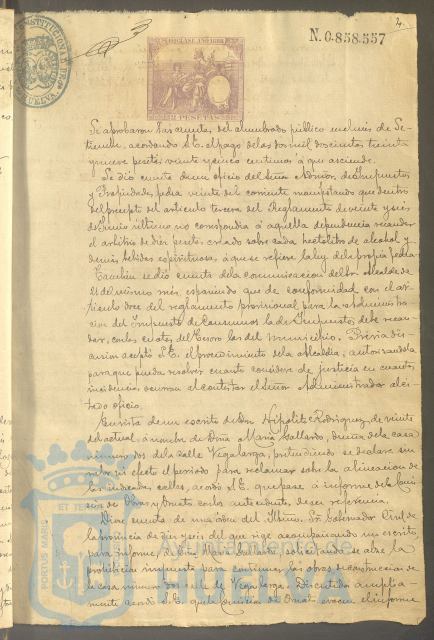 N. 0.858.557
PESETAS
Se aprobaron las cuentas del alumbrado público en el mes de Se-
tiembre, acordando S.E. el pago de las dos mil doscientas treinta
y nueve pesetas veinte y cinco centimos á que asciende.
Se dió cuenta de un oficio del Señor Admor. de Impuestos
y Propiedades, fecha veinte del corriente manifestando que dentro
del precepto del articulo tercero del Reglamento de veinte y seis
de Junio último no correspondia á aquella dependencia recaudar
el arbitrio de diez pesetas creado sobre cada hectolitro de alcohol y
demás bebidas espirituosas, á que se refiere la ley de la propia fecha.
Tambien se dió cuenta de la comunicacion del Sr. Alcalde de
21 del mismo mes exponiendo que de conformidad con el ar-
tículo doce del reglamento provisional para la administra-
cion del Impuesto de Consumos la de Impuestos, debe recau-
dar, con las cuotas del Tesoro las del municipio. Previa dis-
cusion aceptó S.E. el procedimiento de la Alcaldia, autorizandola
para que pueda resolver cuanto considere de justicia en cuantas
incidencias ocurran al contestar el Señor Administrador al ci-
tado oficio.
En vista de un escrito de Don Hipolito Rodriguez, de veinte
del actual, á nombre de Doña Maria Gallardo, dueña de la casa
número dos de la calle Vega larga, pretendiendo se declare sin
valor ni efecto el periodo para reclamar sobre la alineacion de
las indicadas calles, acordó S.E. que pase á informe de la Comi-
sion de Obras y Ornato con los antecedentes de su referencia.
Diose cuenta de una orden del Iltmo. Sr. Gobernador Civil de
la provincia de diez y seis del que rige acompañando un escrito,
para informe, de Doña Maria Gallardo, solicitando se alce la
prohibicion impuesta para continuar las obras de construccion de
la casa numero dos calle de Vega larga. Discutido amplia-
mente acordó S.E. que la Comision de Ornato evacue el informe
PORTUS MARIS
ET TERRAE
Ayuntamiento de
HUELVA